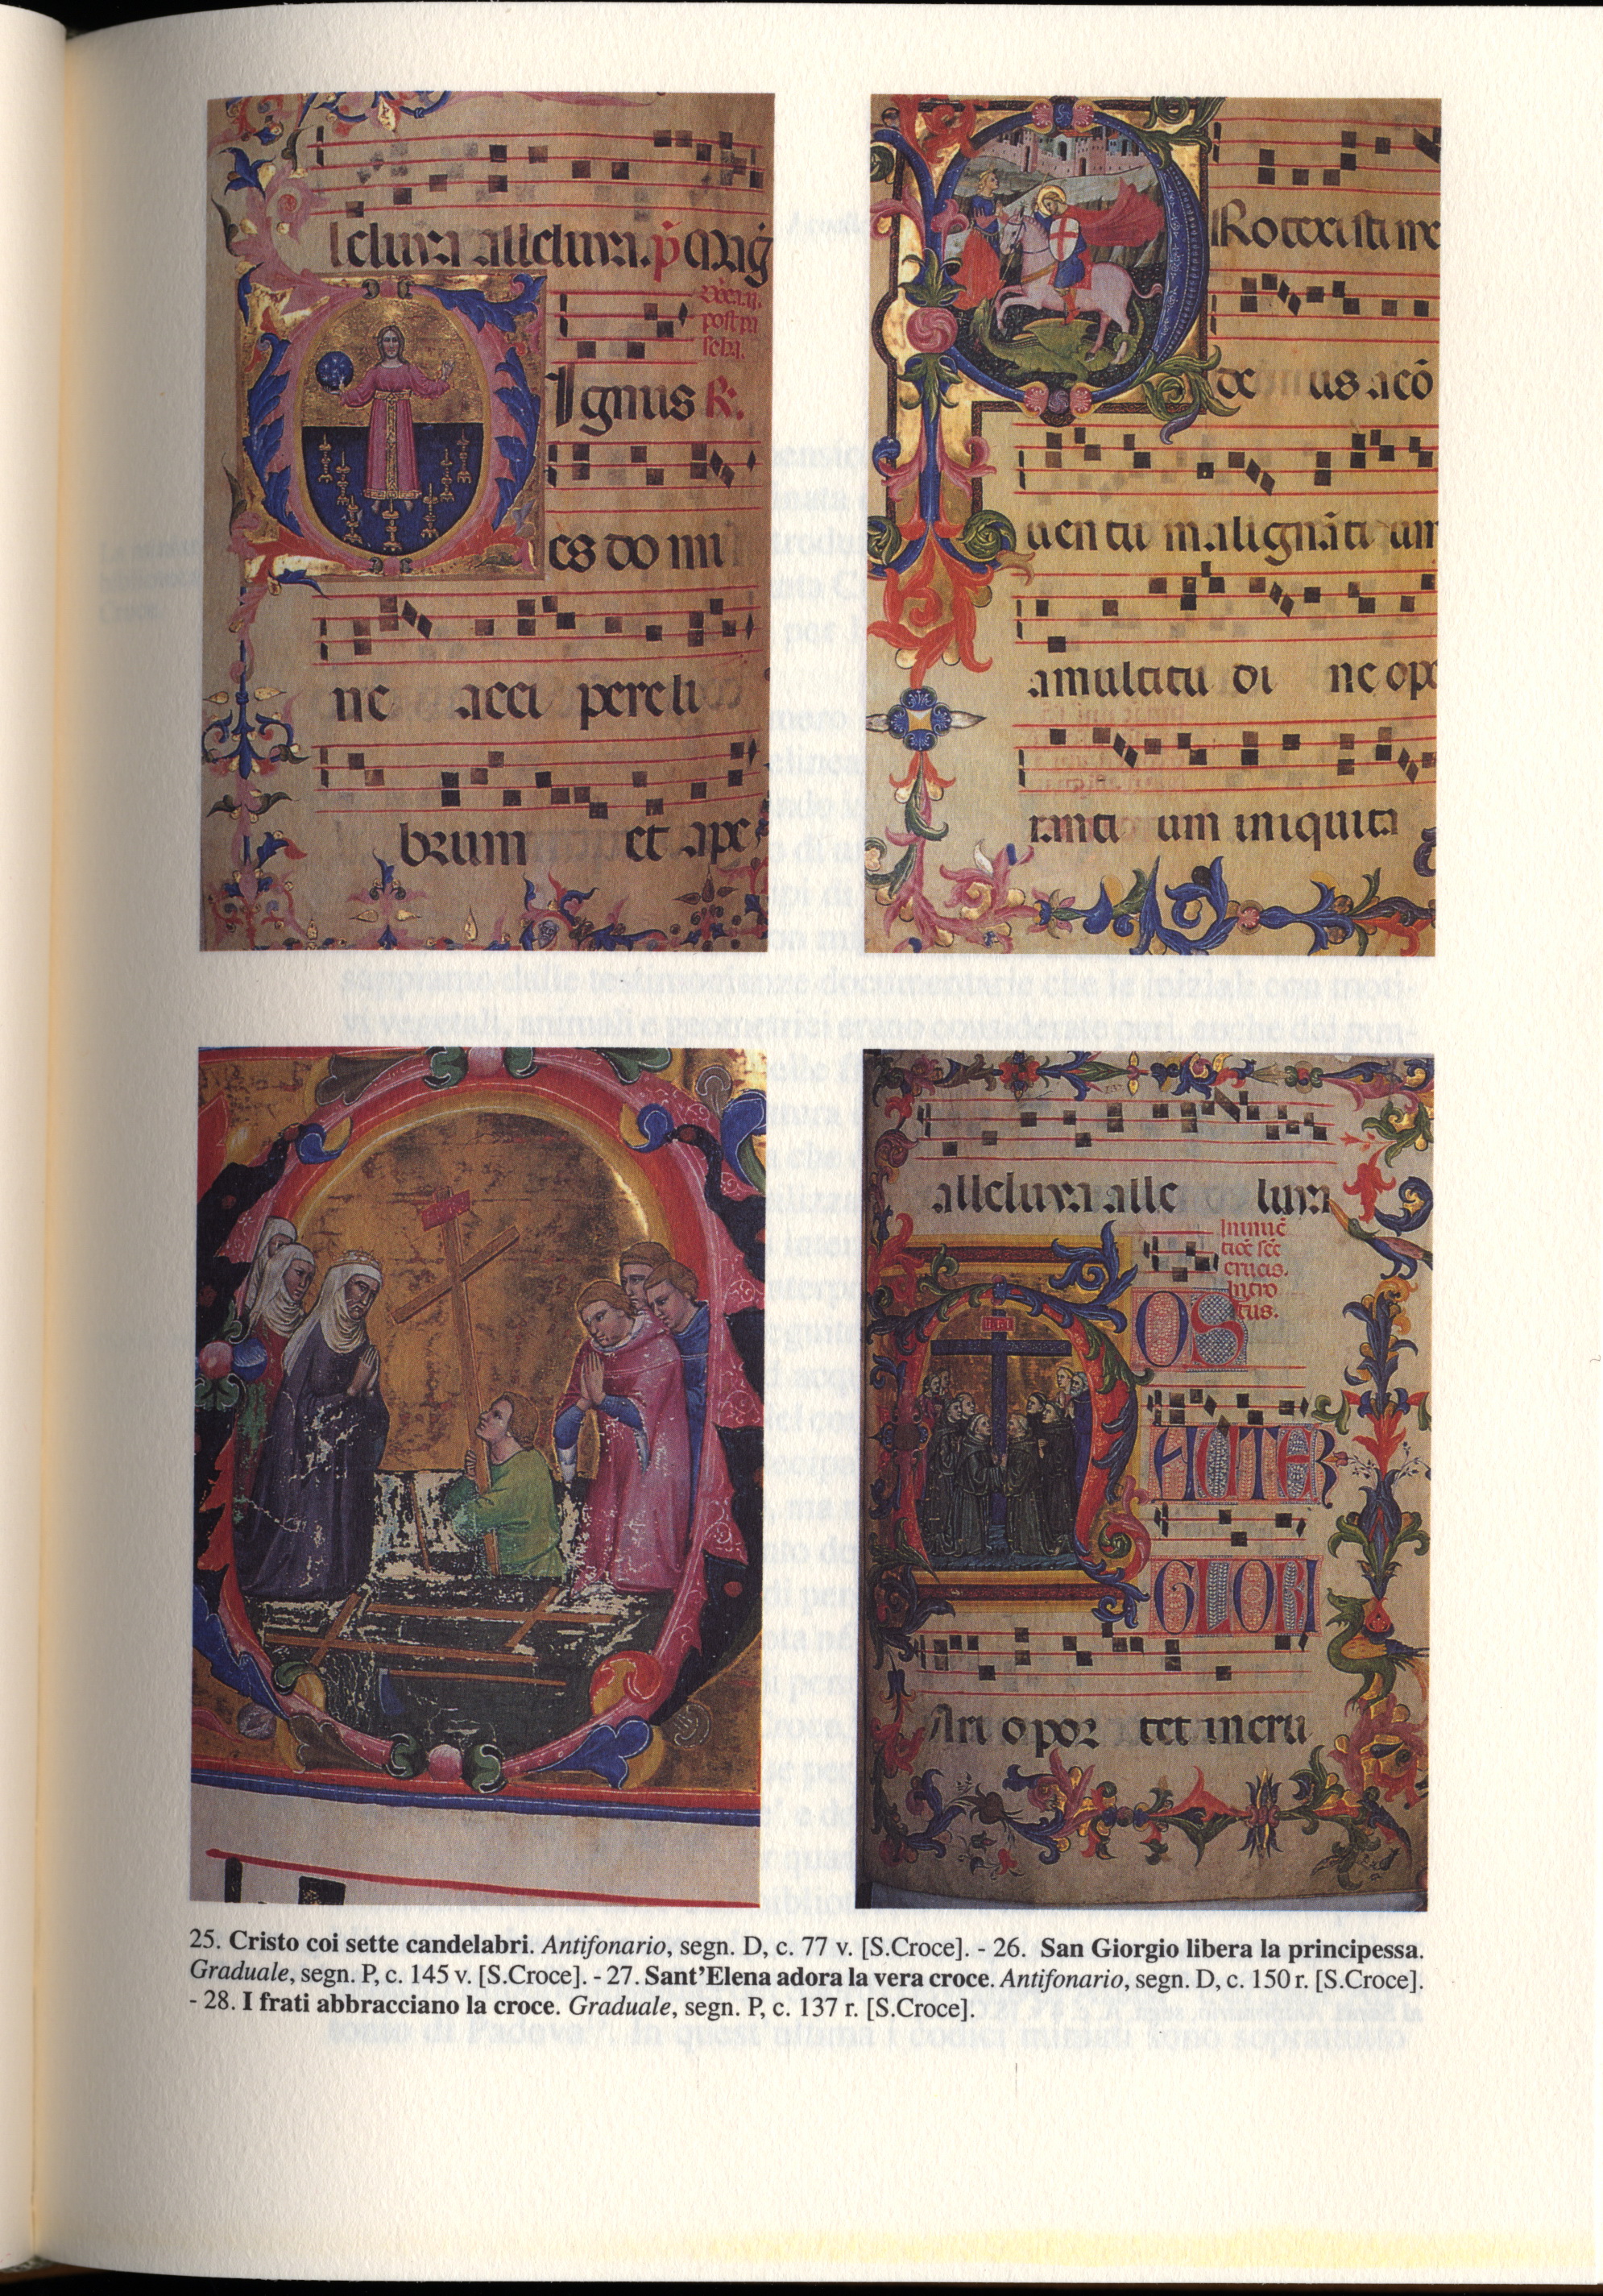 leluya alleluya. p̄ Mag̅
post pa
scha.
Ignus R.
es domi
ne acci pere li
brum et ape
Rotexisti me
de us a cō
uen tu malignāti um
a multitu di ne ope
ranti um iniquita
alleluya alle luya
crucis.
Intro
itus.
OS
AUTEM
GLORI
Ari opor tet in cru
25. Cristo coi sette candelabri. Antifonario, segn. D, c. 77 v. [S.Croce]. - 26. San Giorgio libera la principessa.
Graduale, segn. P, c. 145 v. [S.Croce]. - 27. Sant'Elena adora la vera croce. Antifonario, segn. D, c. 150 r. [S.Croce].
- 28. I frati abbracciano la croce. Graduale, segn. P, c. 137 r. [S.Croce].